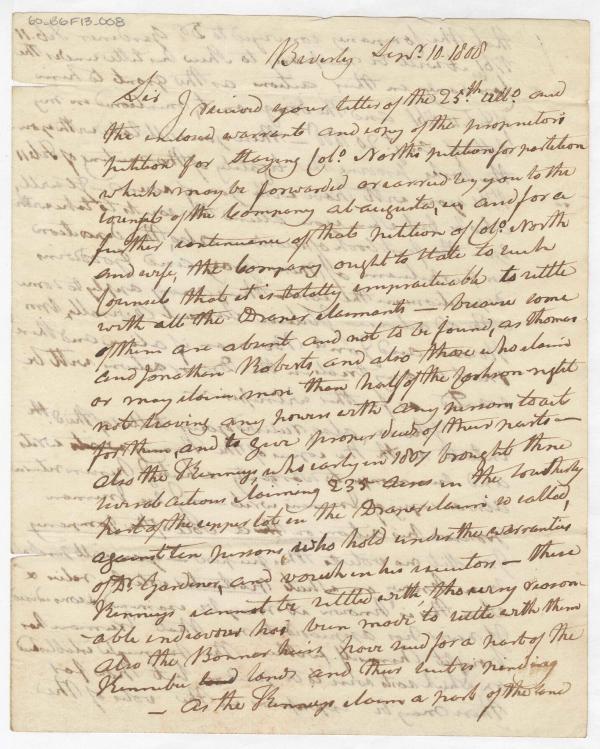 60_B6F13_008
Beverly Sepr. 10. 1808
Sir I received your letter of the 25th Ulto. and
the inclosed warrants and copy of the proprietors
petition for Staying Colo. North's petition for partition
which may be forwarded or carried by you to the
Counsel of the Company at Augusta, and for a
further continuance of that petition of Colo. North
and wife, the Company ought to State to such
Counsel that it is totally impracticable to settle
with all the Draper claimants — because some
of them are absent and not to be found, as Thomas
and Jonathan Roberts, and also those who claim
or may claim more than half of the Cookson right
not leaving any powers with any person to act
for them, and to give proper deeds of their parts —
also the Kenneys, who early in 1807 brought three
several actions claiming 234 acres in the Southerly
part of the upper lot in the Draper claim so called,
against ten persons, who hold under the warranties
of Dr. Gardiner, and vouch in his executors — these
Kenneys cannot be settled with tho very reason
able endeavour has been made to settle with them
also the Bonner heirs have sued for a part of the
Kennebec lands and their suit is pending
— as the Kenneys claim a part of the land